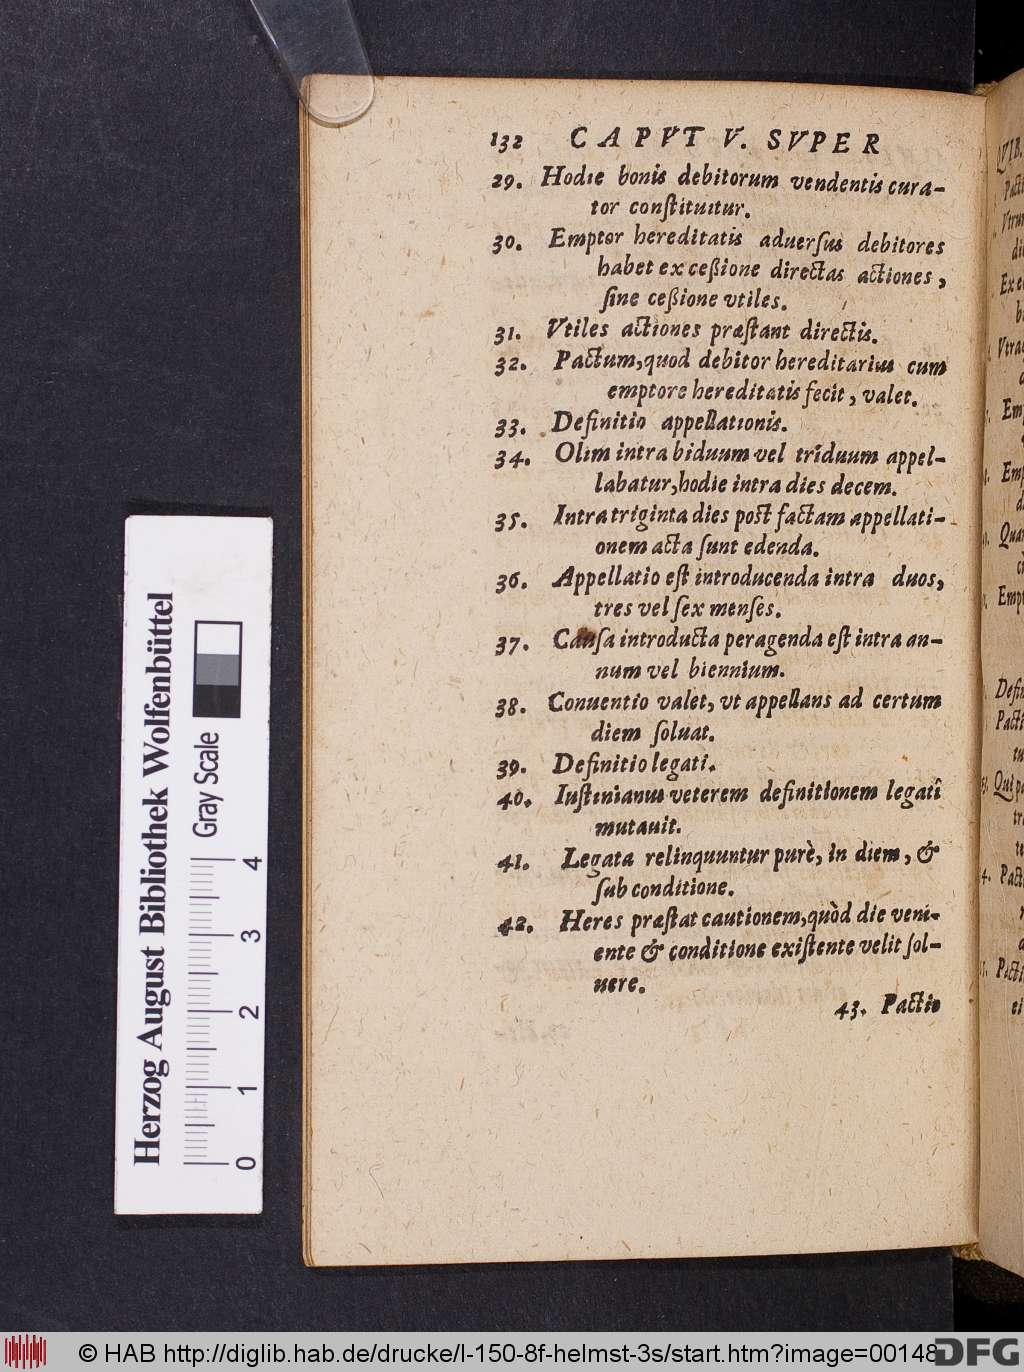 132 CAPVT V. SVPER
29. Hodie bonis debitorum vendentis cura-
tor conſtituitur.
30. Emptor hereditatis aduerſus debitores
habet ex ceßione directas actiones,
ſine ceßione vtiles.
31. Vtiles actiones præſtant directis.
32. Pactum, quod debitor hereditarius cum
emptore hereditatis fecit, valet.
33. Definitio appellationis.
34. Olim intra biduum vel triduum appel-
labatur, hodie intra dies decem.
35. Intra triginta dies poſt factam appellati-
onem acta ſunt edenda.
36. Appellatio eſt introducenda intra duos,
tres vel ſex menſes.
37. Cauſa introducta peragenda eſt intra an-
num vel biennium.
38. Conuentio valet, vt appellans ad certum
diem ſoluat.
39. Definitio legati.
40. Iuſtinianus veterem definitionem legati
mutauit.
41. Legata relinquuntur purè, in diem, &
ſub conditione.
42. Heres præſtat cautionem, quòd die veni-
ente & conditione exiſtente velit ſol-
uere.
43. Pactio
Herzog August Bibliothek Wolfenbüttel
Gray Scale
0 1 2 3 4
© HAB http://diglib.hab.de/drucke/l-150-8f-helmst-3s/start.htm?image=00148
DFG